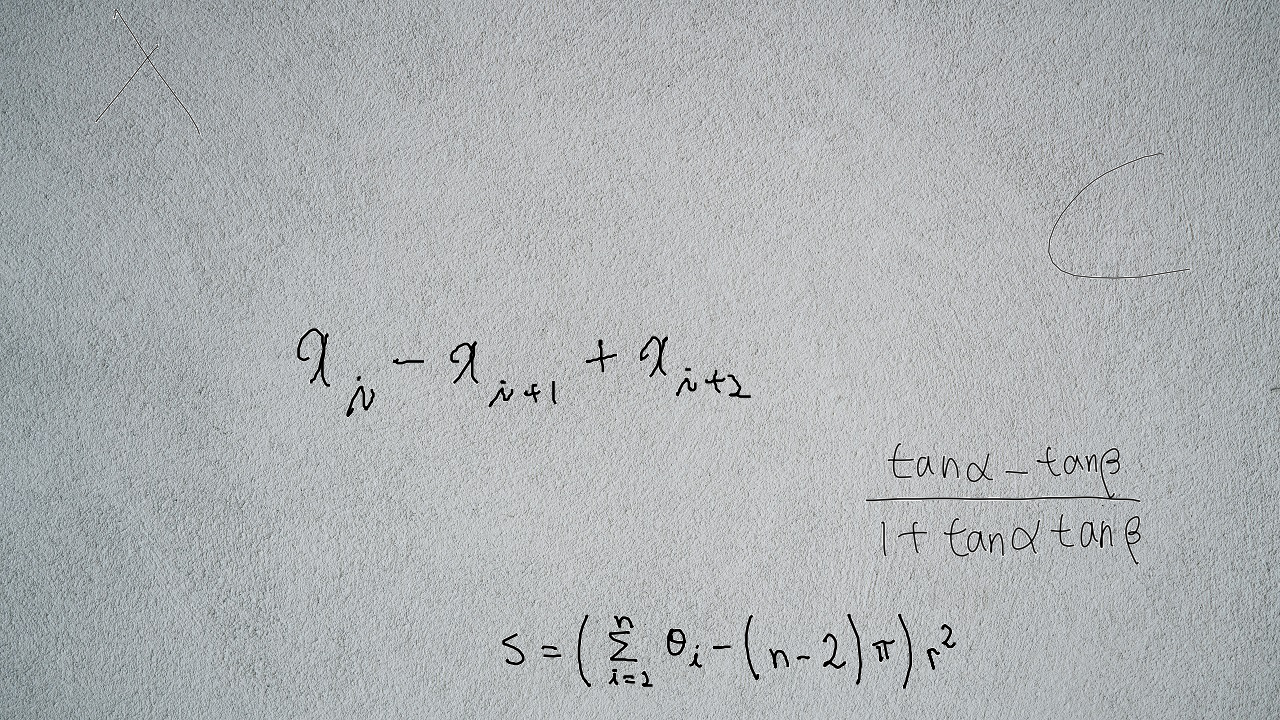 X
C
x_i - x_{i+1} + x_{i+2}
\frac{\tan\alpha - \tan\beta}{1 + \tan\alpha \tan\beta}
S = ( \sum_{i=2}^{n} θ_i - (n-2) π ) r^2